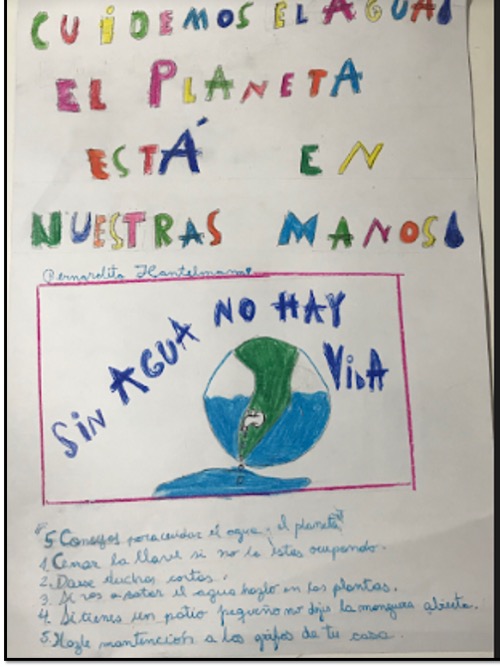 CUIDEMOS EL AGUA
EL PLANETA
ESTÁ EN
NUESTRAS MANOS
Bernardita Hantelmann
SIN AGUA NO HAY VIDA
"5 Consejos para cuidar el agua y el planeta"
1. Cerrar la llave si no la estas ocupando.
2. Darse duchas cortas.
3. Si vas a botar el agua hazlo en las plantas.
4. Si tienes un patio pequeño no dejes la manguera abierta.
5. Hazle mantención a los grifos de tu casa.